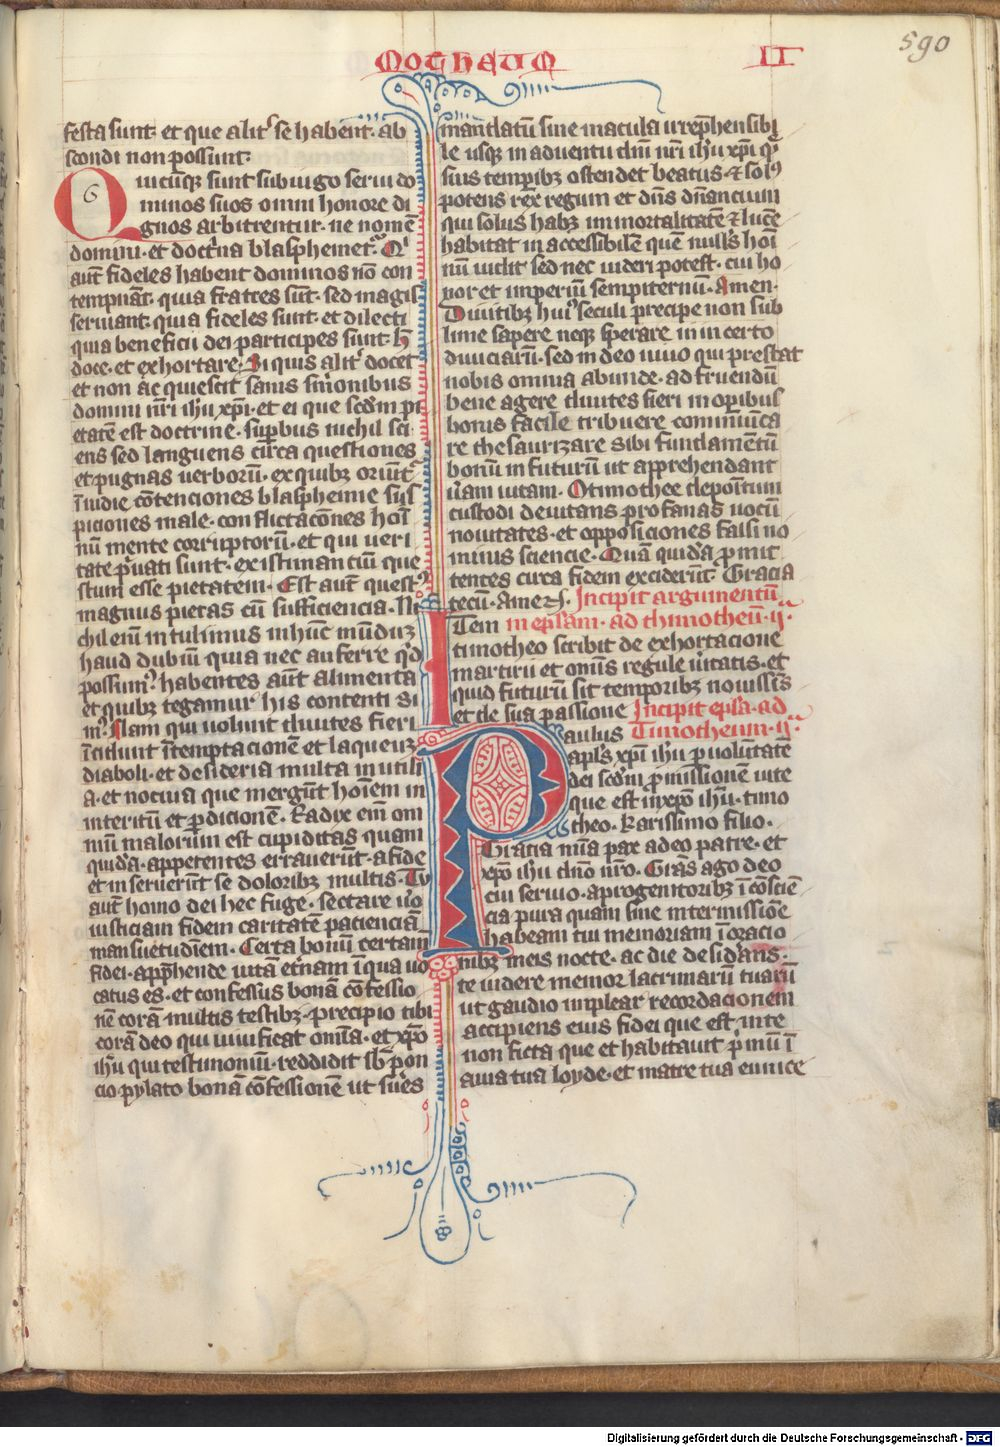 590
MOTHEUM II
festa sunt. et que alit' se habent. ab
scondi non possunt.
Quicūq; sunt sub iugo serui do
6
minos suos omni honore di
gnos arbitrentur. ne nomē
domini. et doctͥna blasphemet᷑. Qͥ
aūt fideles habent dominos nō con
tempnāt. quia fratres sūt. sed magis
seruiant. quia fideles sunt. et dilecti
quia beneficii dei participes sunt. h̄
doce. et exhortare. Si quis alit' docet
et non acquiescit sanis s̄monibus
domini nr̄i ih̄u xp̄i. et ei que scd̄m pi
etatē est doctrine. suꝑbus nichil sci
ens sed languens circa questiones
et pugnas uerborū. ex quibꝫ oriūt᷑
īuidie cōtenciones blasphemie sus
piciones male. conflictacōnes hoī
nū mente corruptorū. et qui ueri
tate pͥuati sunt. existimanciū que
stum esse pietatem. Est aūt quest9
magnus pietas cū sufficiencia. Ni
chil enī intulimus in hūc mūdū ꝫ
haud dubiū quia nec auferre qͥd
possum9. habentes aūt alimenta
et quibꝫ tegamur his contenti si
m9. Nam qui uolunt diuites fieri
īcidunt ī temptacionē et laqueū ꝫ
diaboli. et desideria multa inutili
a. et nociua que mergūt hoīem in
interitū et ꝑdicionē. Radix enī om
niū malorum est cupiditas quam
quidā. appetentes errauerūt. a fide
et inseruerūt se doloribꝫ multis. Tu
aūt homo dei hec fuge. sectare u̅o
iusticiam fidem caritatē pacienciā
mansuetudinem. Certa bonū certam̄
fidei. appͥhende uitā etͥnam ī qua uo
catus es. et confessus bonā cōfessio
nē corā multis testibꝫ. precipio tibi
corā deo qui uiuificat omīa. et xp̄o
ih̄u qui testimoniū. reddidit sb̄ pon
cio pylato bonā cōfessionē ut sͥues
mandatū sine macula irrep̄hensibi
le usq; in aduentū dn̄i nr̄i ih̄u xp̄i. qͥ
suis temꝑibꝫ ostendet beatus ⁊ sol9
potens rex regum et dn̄s dn̄anciū
qui solus habꝫ immortalitatē ⁊ lucē
habitat inaccessibilē quē null9s hoī
nū uidit sed nec uideri potest. cui ho
nor et imperiū sempiternū. Amen.
Diuitibꝫ hui9 seculi precipe non sub
lime sapere neqꝫ sperare in incerto
diuiciarū. sed in deo uiuo qui prestat
nobis omnia abunde. ad fruendū
bene agere diuites fieri in oꝑibus
bonis facile tribuere communica
re thesaurizare sibi fundamētū
bonū in futurū ut apprehendant
u̅am uitam. O timothee depoītum
custodi deuitans profanas uocū
nouitates. et opposiciones falsi no
minis sciencie. Quā quidā pͦmit
tentes circa fidem exciderūt. Gracia
tecū. Amen. Incipit argumentū
Item in ep̄lam. ad thimotheū. ij.
timotheo scribit de exhortacione
martirii et om̄is regule ūitatis. et
quid futurū sit temporibꝫ nouissīs
et de sua passione Incipit ep̄la. ad
Paulus Timotheum. ij.
apl̄s xp̄i ih̄u ꝑ uolūtatē
dei scd̄m pͦmissionē uite
que est in xp̄o ih̄u. timo
theo. karissimo filio.
Gracia m̄ia pax a deo patre. et
xp̄o ih̄u dn̄o nr̄o. Grās ago deo
cui seruio. a progenitoribꝫ ī cōsciē
cia pura quam sine intermissiōe
habeam tui memoriam ī oracio
nibꝫ meis nocte. ac die desidͥans.
te uidere memor lacrimarū tuarū
ut gaudio implear recordacionem
accipiens eius fidei que est. in te
non ficta que et habitauit pͥmū ī
auia tua loyde. et matre tua eunice
Digitalisierung gefördert durch die Deutsche Forschungsgemeinschaft - DFG